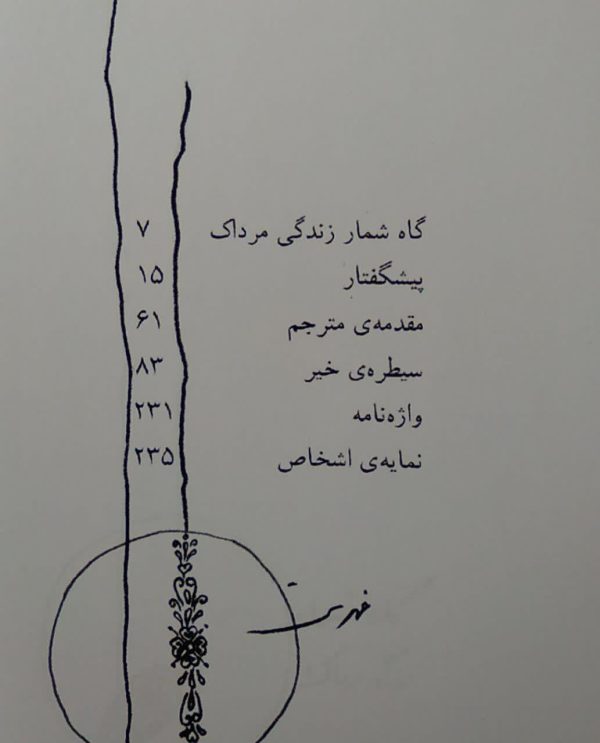 گاه شمار زندگی مرداک ۷
پیشگفتار ۱۵
مقدمه‌ی مترجم ۶۱
سیطره‌ی خیر ۸۳
واژه‌نامه ۲۳۱
نمایه‌ی اشخاص ۲۳۵
فهرست